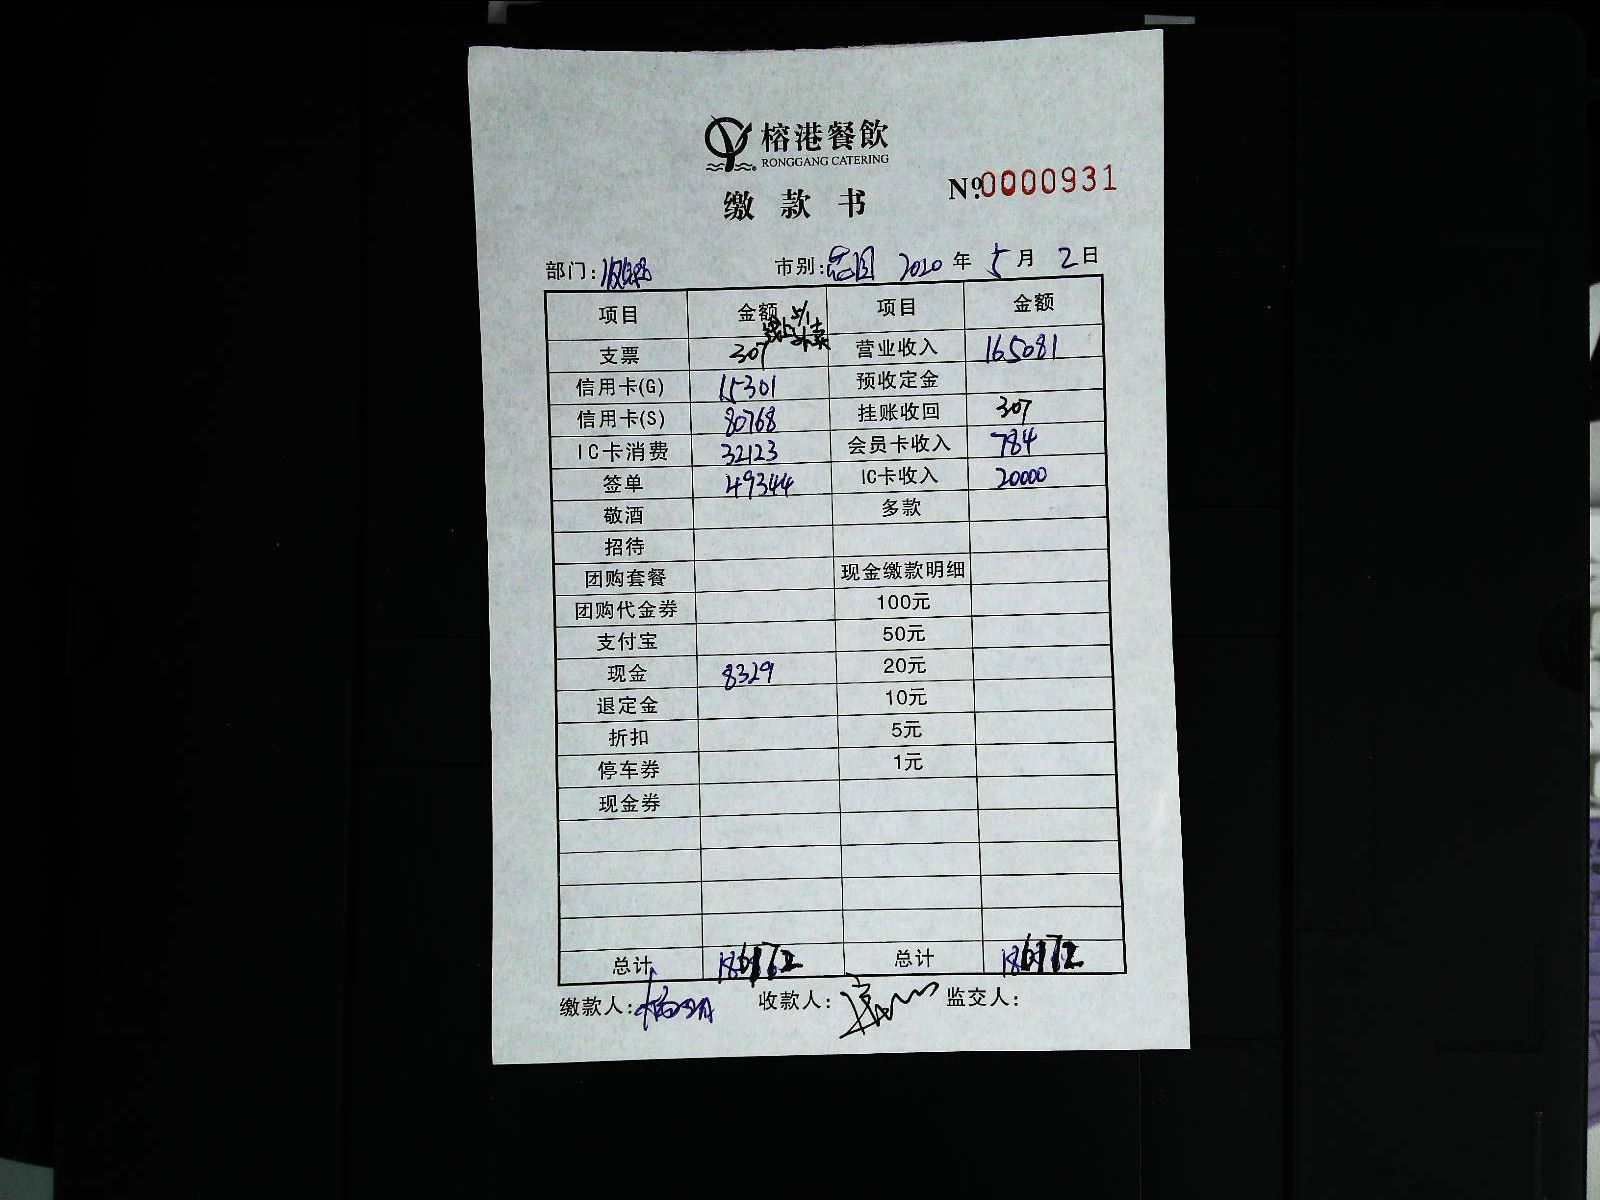 榕港餐飲
RONGGANG CATERING
缴款书
Nº0000931
部门: 市别: 2020年5月2日
项目 金额 项目 金额
5/1
线上外卖
支票 307 营业收入 165081
信用卡(G) 15301 预收定金
信用卡(S) 80768 挂账收回 307
IC卡消费 32123 会员卡收入 784
签单 49344 IC卡收入 20000
敬酒 多款
招待
团购套餐 现金缴款明细
团购代金券 100元
支付宝 50元
现金 8329 20元
退定金 10元
折扣 5元
停车券 1元
现金券
总计 186172 总计 186172
缴款人: 收款人: 监交人: